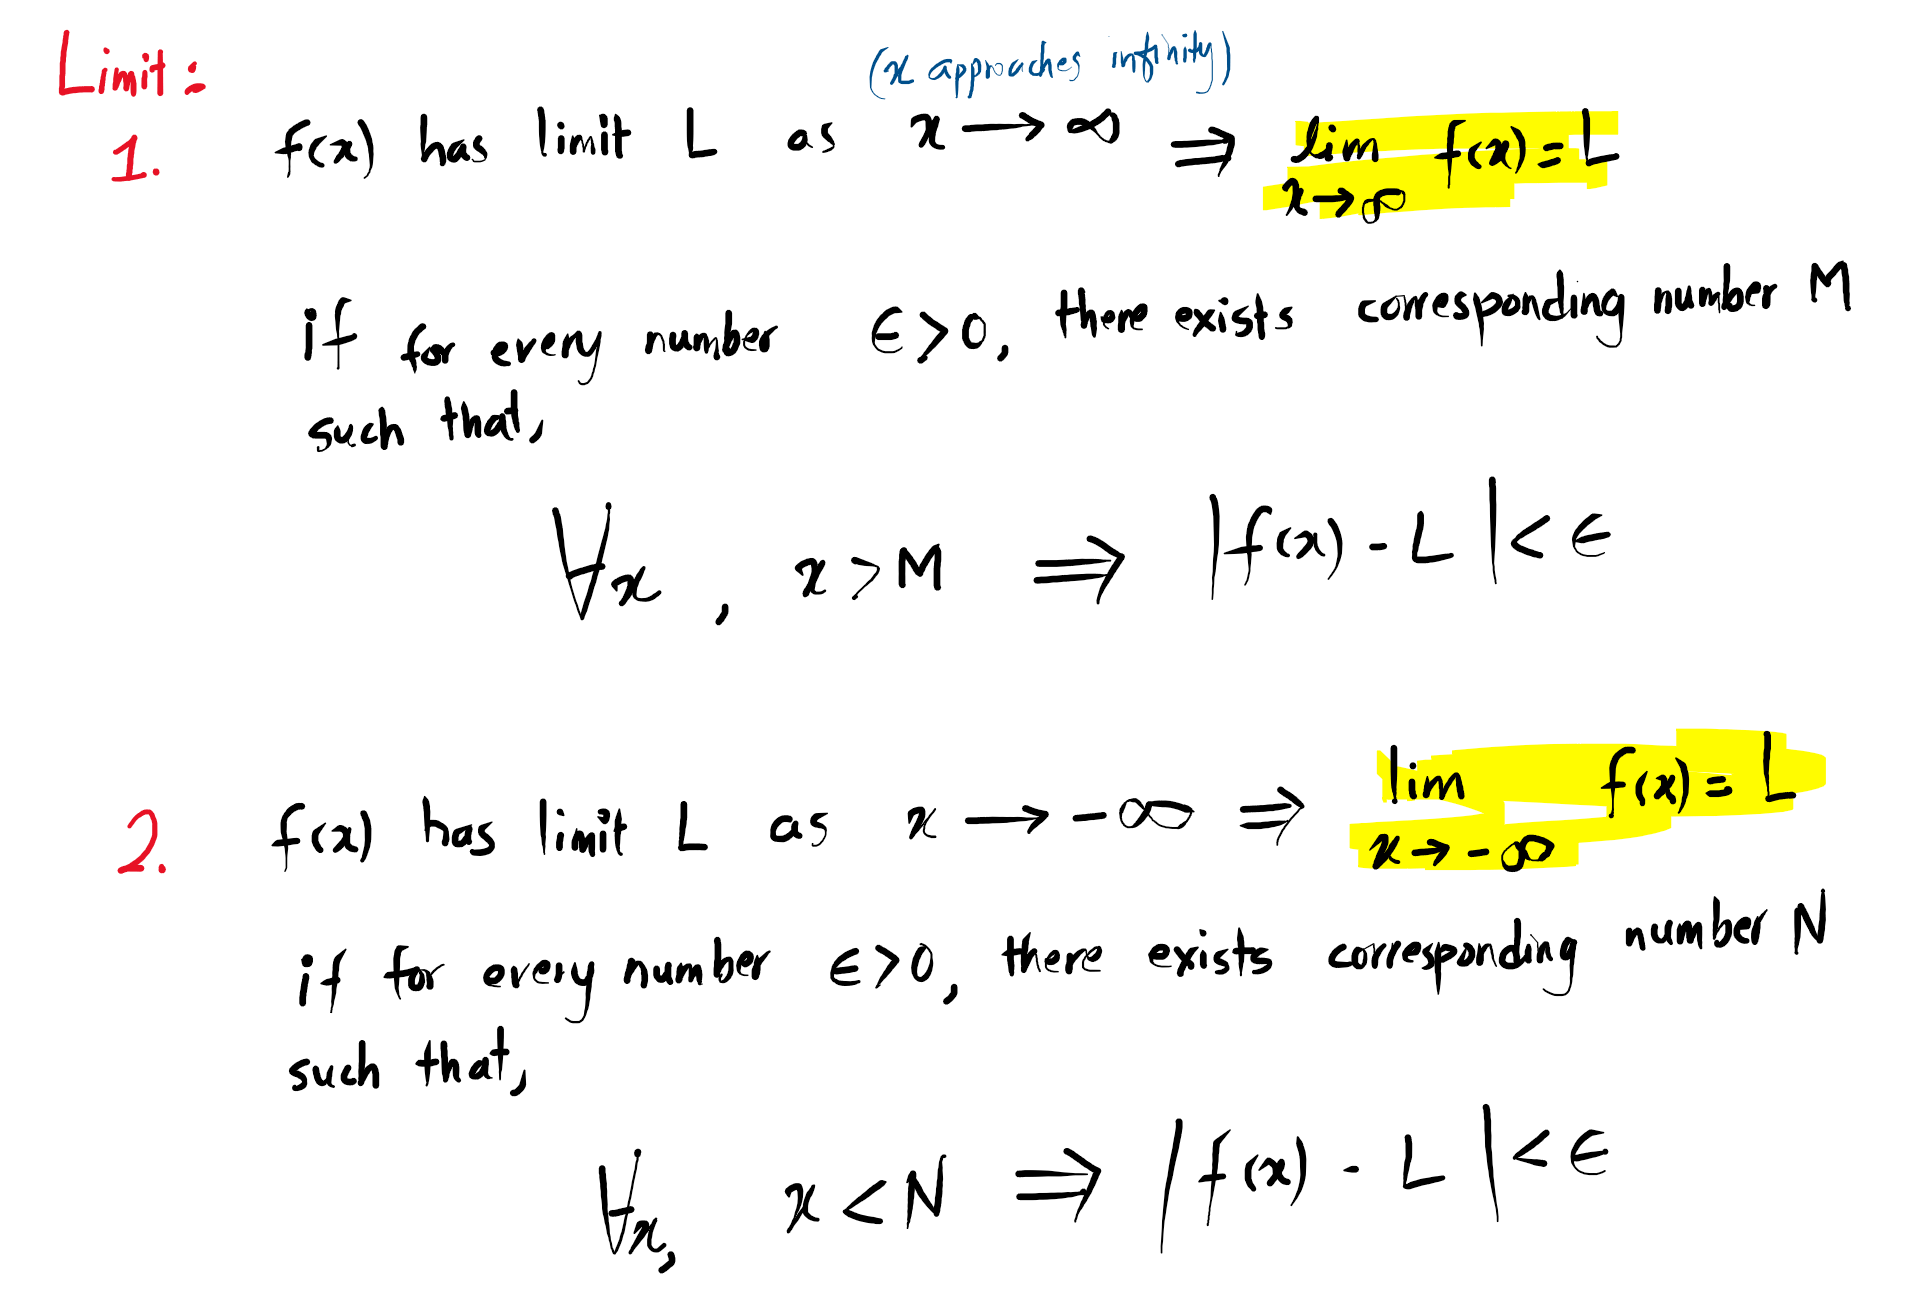 Limit:
(x approaches infinity)
1. f(x) has limit L as x → ∞ ⇒ lim f(x) = L
x→∞
if for every number ϵ>0, there exists corresponding number M
such that,
∀x , x>M ⇒ |f(x) - L|< ϵ
2. f(x) has limit L as x → -∞ ⇒ lim f(x) = L
x→-∞
if for every number ϵ>0, there exists corresponding number N
such that,
∀x, x<N ⇒ |f(x) - L|<ϵ